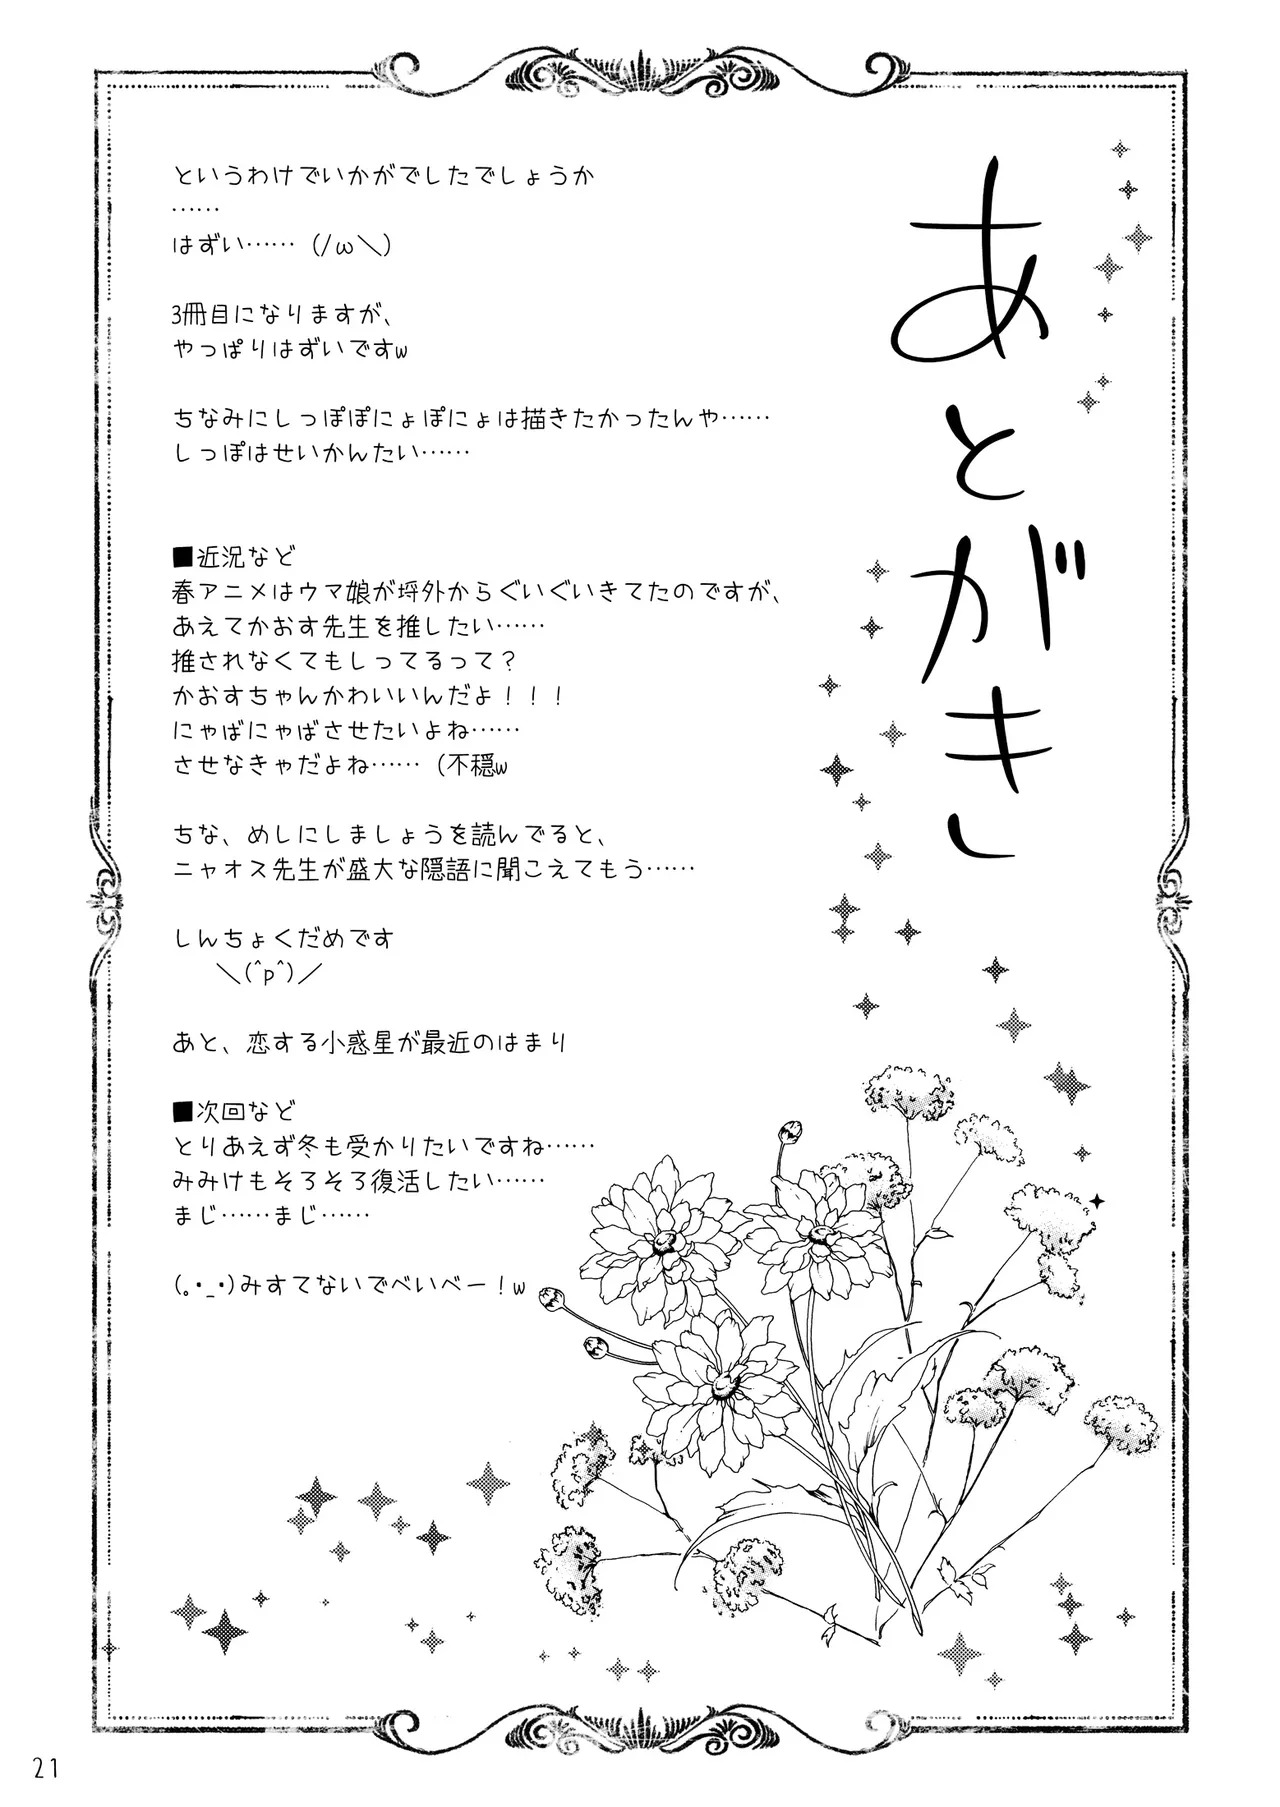 あとがき
というわけでいかがでしたでしょうか
……
はずい……（/ω＼）
3冊目になりますが、
やっぱりはずいですw
ちなみにしっぽぽにょぽにょは描きたかったんや……
しっぽはせいかんたい……
■近況など
春アニメはウマ娘が埒外からぐいぐいきてたのですが、
あえてかおす先生を推したい……
推されなくてもしってるって？
かおすちゃんかわいいんだよ！！！
にゃばにゃばさせたいよね……
させなきゃだよね……（不穏w
ちな、めしにしましょうを読んでると、
ニャオス先生が盛大な隠語に聞こえてもう……
しんちょくだめです
＼(^p^)／
あと、恋する小惑星が最近のはまり
■次回など
とりあえず冬も受かりたいですね……
みみけもそろそろ復活したい……
まじ……まじ……
(｡•_•)みすてないでべいべー！w
21